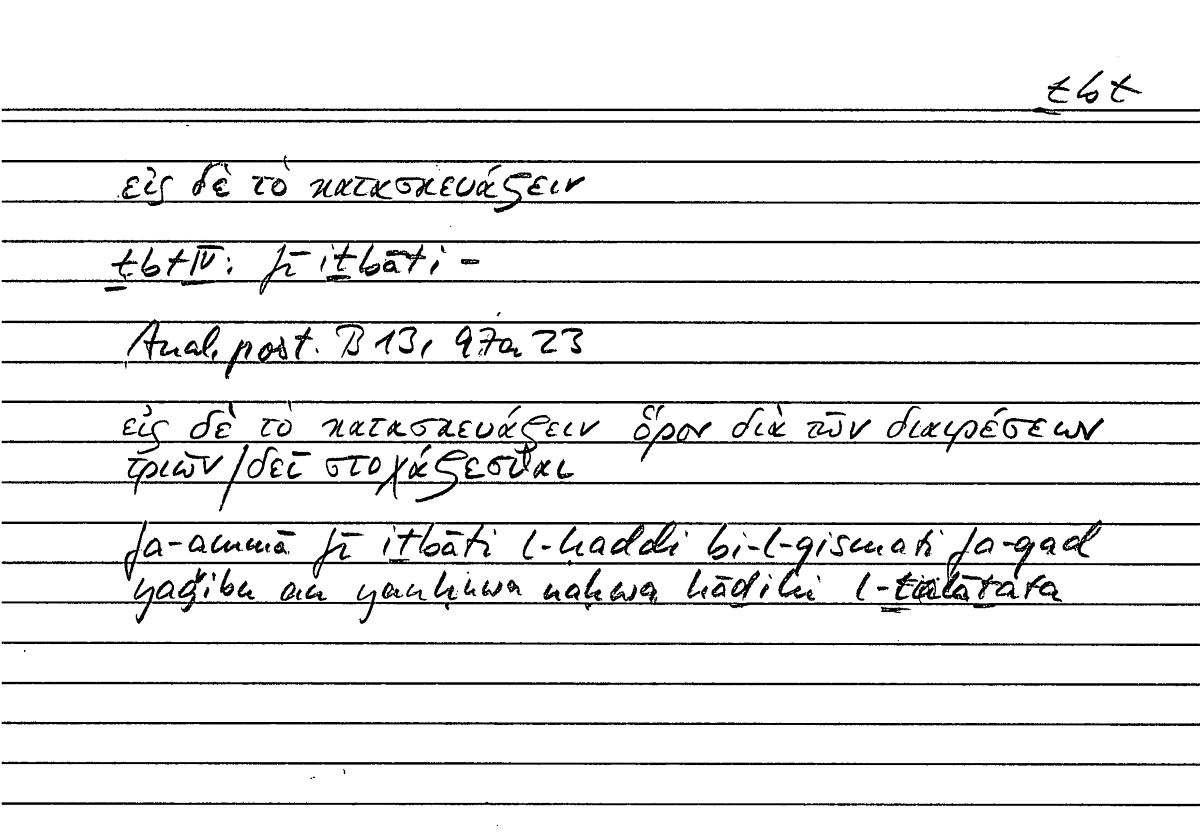 ṯbt
εἰς δὲ τὸ κατασκευάζειν
ṯbt IV: fī iṯbāti –
Anal. post. B 13, 97a 23
εἰς δὲ τὸ κατασκευάζειν ὅρον διὰ τῶν διαιρέσεων
τριῶν/δεῖ στοχάζεσθαι
fa-ammā fī iṯbāti l-ḥaddi bi-l-qismati fa-qad
yaǧibu an yanḥuwa naḥwa hāḏihi l-ṯalāṯata